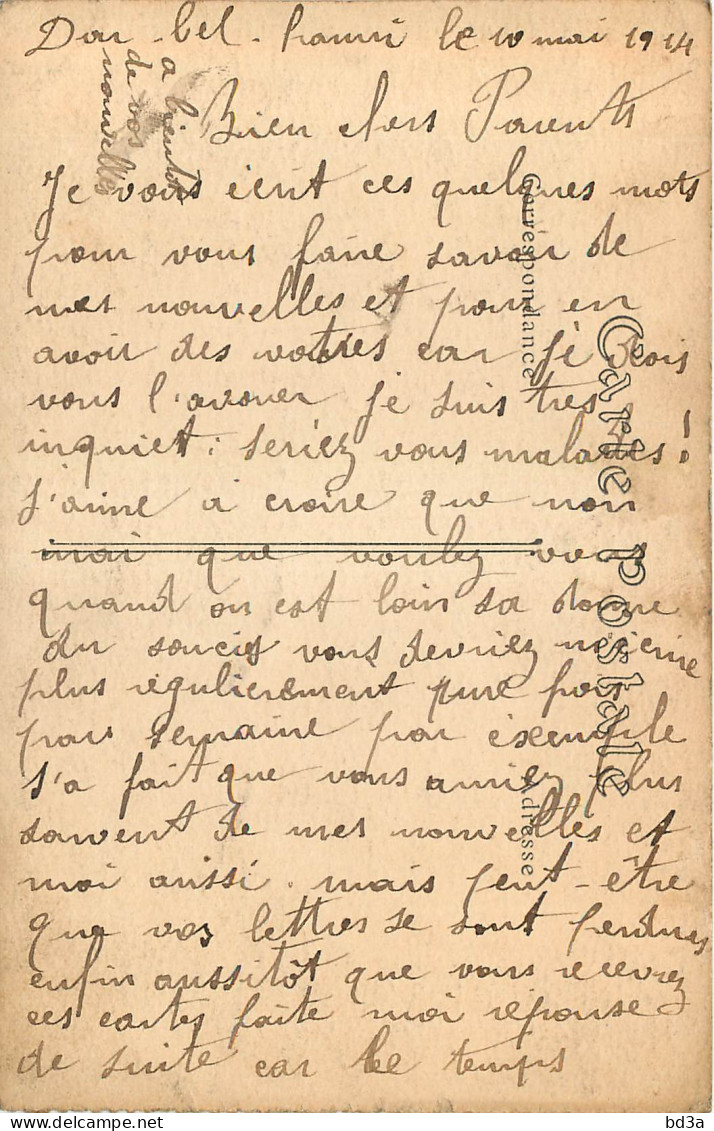 Dar-bel-hamri le 10 mai 1914
a bientot
de vos
nouvelles
Bien chers Parents
Je vous ecrit ces quelques mots
pour vous faire savoir de
mes nouvelles et pour en
avoir des votres car je dois
vous l'avouer je suis tres
inquiet; seriez vous malades!
J'aime a croire que non
mai que voulez vous
quand on est loin sa donne
du soucis vous devriez mecrire
plus régulierement une fois
par semaine par exemple
s'a fait que vous auriez plus
souvent de mes nouvelles et
moi aussi. mais peut-être
que vos lettres se sont perdues
enfin aussitôt que vous recevrez
ces cartes faite moi réponse
de suite car le temps
Carte postale
Correspondance
Adresse
bd3a